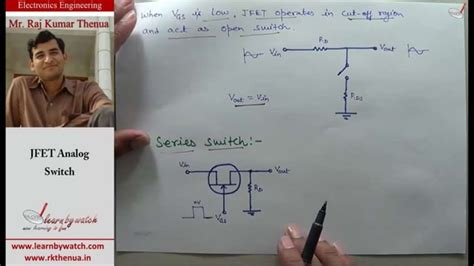 Electronics Engineering
Mr. Raj Kumar Thenua
JFET Analog
Switch
learnbywatch
www.learnbywatch.com
www.rkthenua.in
When VGS is low, JFET operates in cut-off region
and act as open switch.
RD
Vin
Vout
RDS
Vout = Vin
Series switch:-
Vin
Vout
RD
VGS